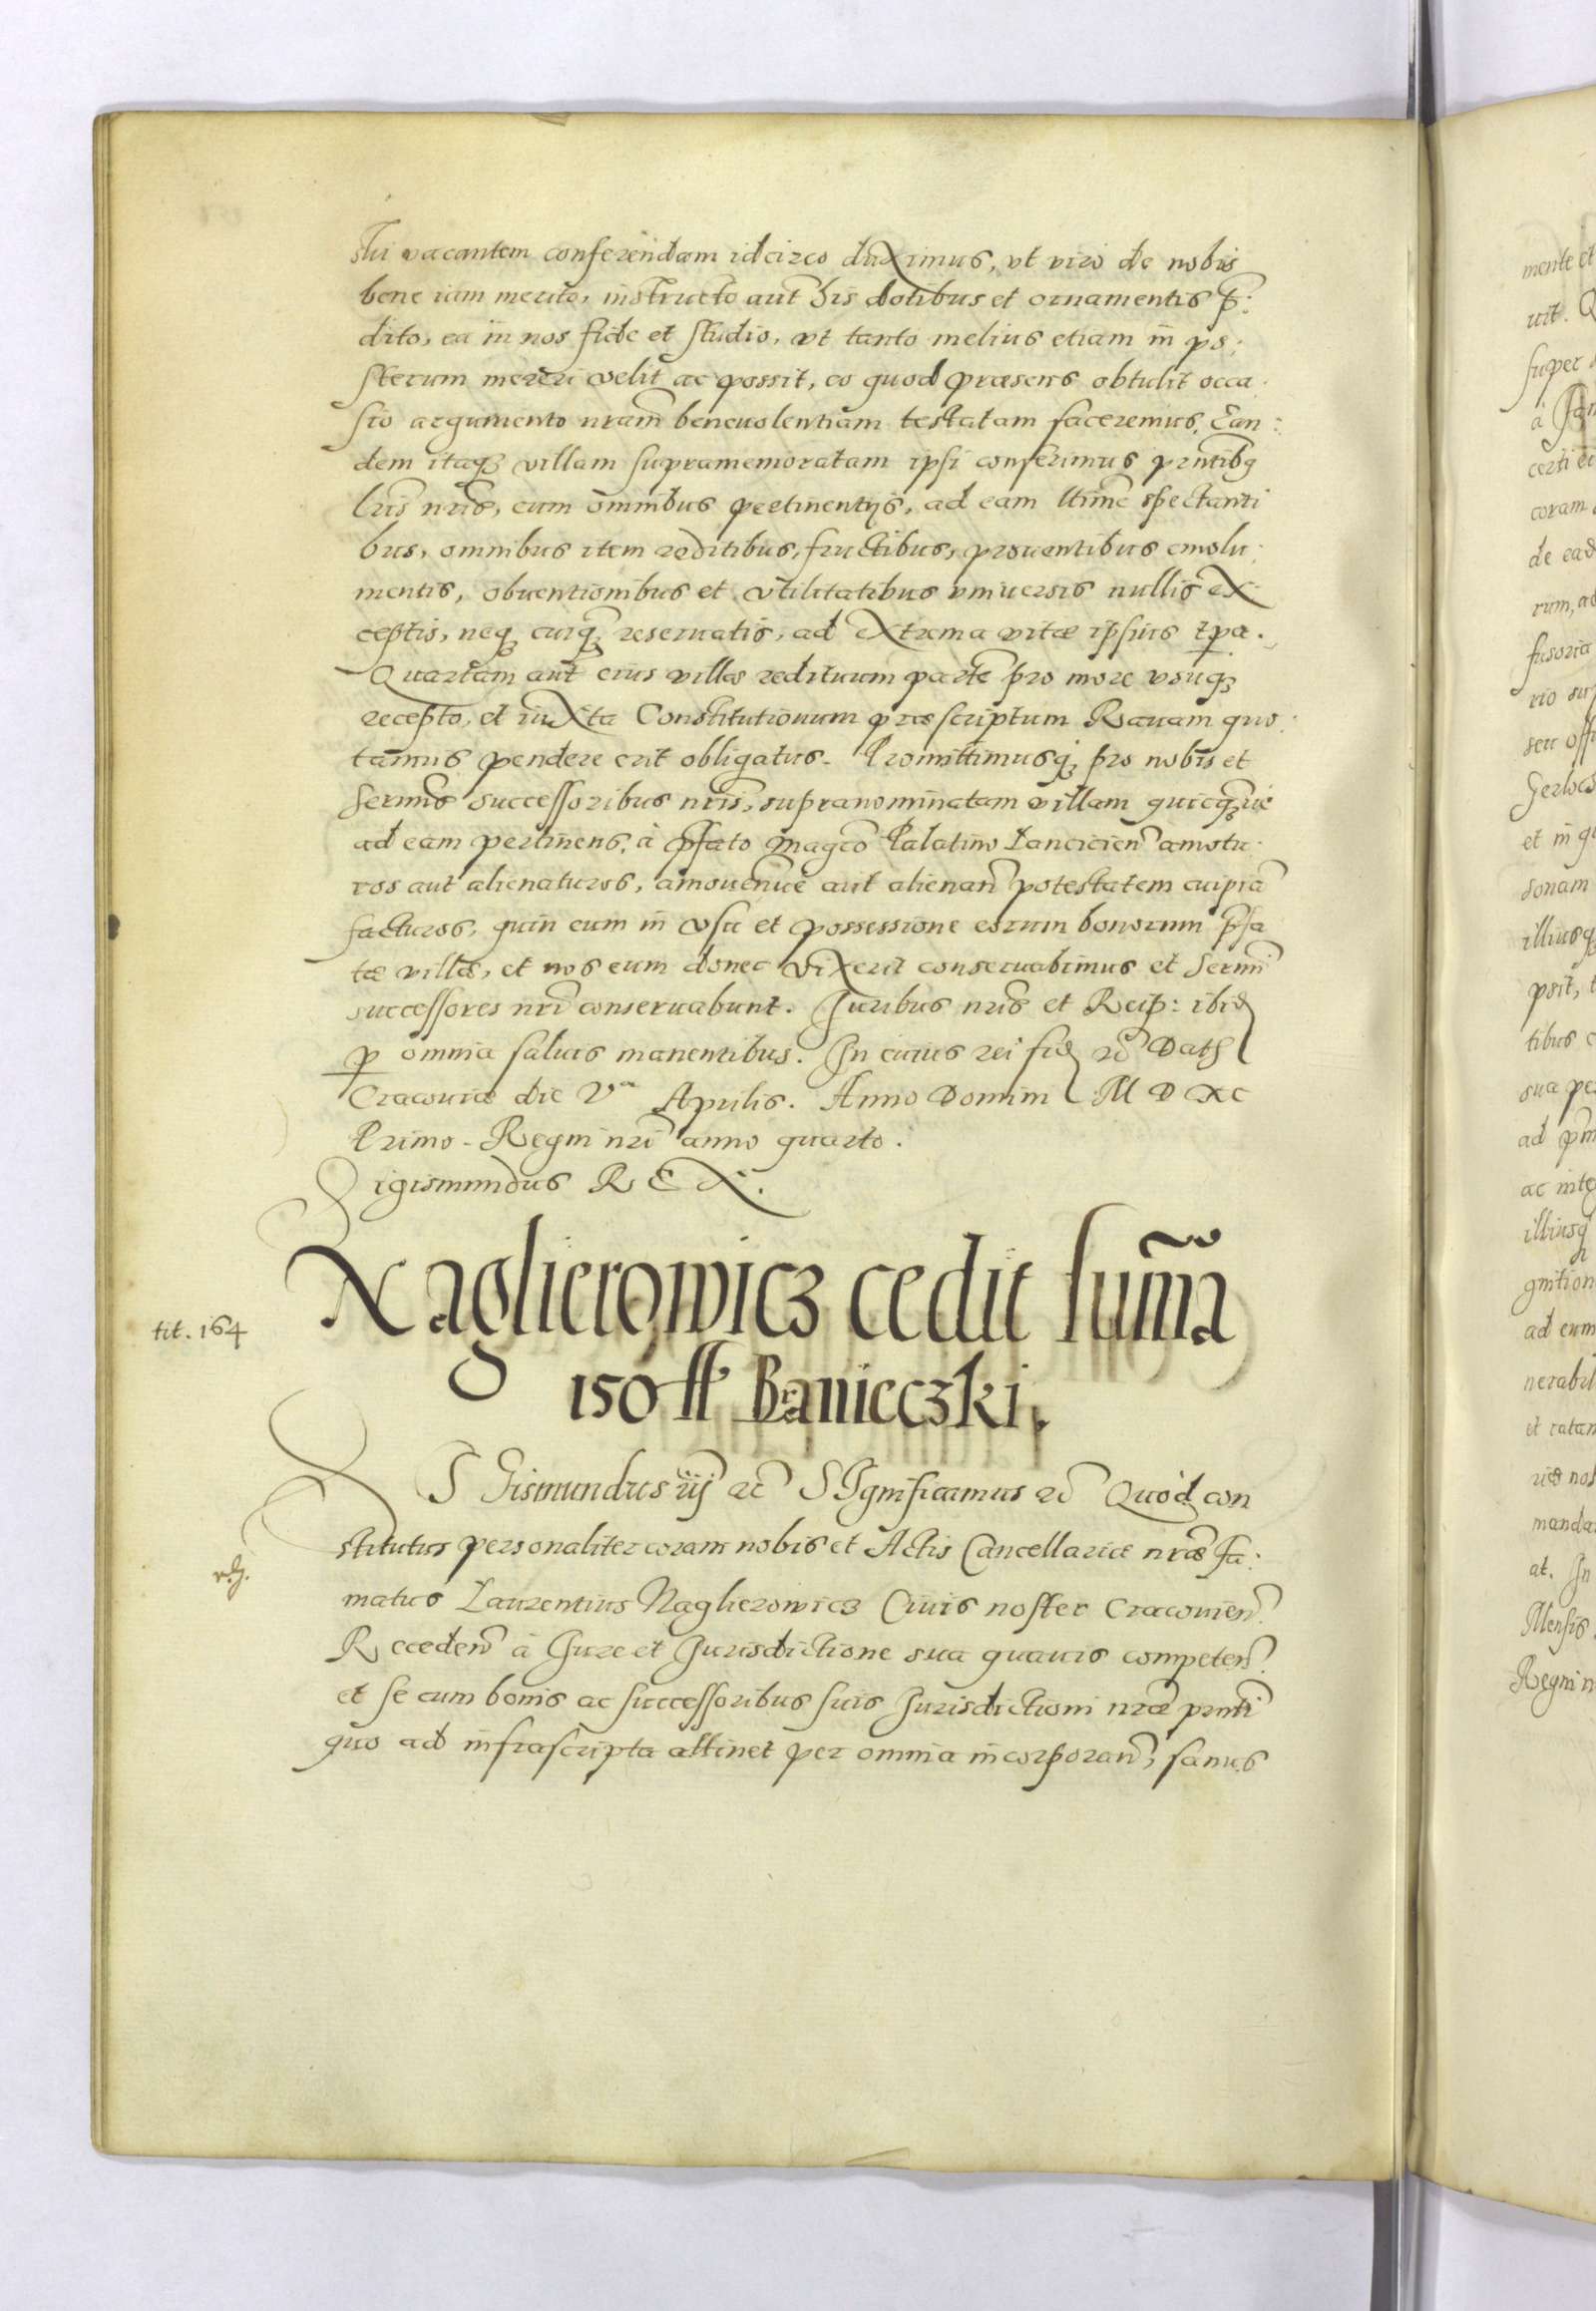 stri vacantem conferendam idcirco duximus, vt viro de nobis
bene iam merito, instructo aut̃ his dotibus et ornamentis p̃:
dito, ea in nos fide et studio, vt tanto melius etiam in po:
sterum mereri velit ac possit, eo quod præsens obtulit occa:
sio argumento nr̃am beneuolentiam testatam faceremus. Ean:
dem itaq́ villam supramemoratam ipsi conferimus prn̄tibq
lr̃is nr̃is, cum omnibus pertinentijs, ad eam ltime spectanti
bus, omnibus item reditibus, fructibus, prouentibus emolu:
mentis, obuentionibus et vtilitatibus vniuersis nullis ex
ceptis, neq́ cuiq́ reseruatis, ad extrema vitæ ipsius tpa.
Quartam aut̃ eius villæ redituum parte pro more vsuq́
recepto, et iuxta Constitutionum præscriptum Rauam quo:
tannis pendere erit obligatus. Promittimusq́ pro nobis et
Sermis successoribus nr̃is, supranominatam villam quicq́ue
ad eam pertinens, à pfato Magco Palatino Lancicien̄ amotu:
ros aut alienaturos, amouen̄ue aut alienan̄ potestatem cuipiā
facturos, quin eum in vsu et possessione eorum bonorum p̃fa
tæ villæ, et nos eum donec vixerit conseruabimus et Sermi
successores nr̃i conseruabunt. Juribus nr̃is et Reip: ibid
p omnia saluis manentibus. In cuius rei fid̄ rc̃ Dath
Cracouiæ die Va Aprilis. Anno Domini M D XC
Primo. Regni nr̃i anno quarto.
Sigismundus REX.
Naglierowicz cedit sum̄ā
150 ff Branieczki.
tit. 164
SIGismundus iij rc̃ SIgnificamus rc̃ Quod con
stitutus personaliter coram nobis et Actis Cancellariæ nr̃æ Fa:
matus Laurentius Naglierowicz Ciuis noster Cracouien̄.
Receden̄ à Jure et Jurisdictione sua quauis competen̄.
et se cum bonis ac successoribus suis Jurisdictioni nr̃æ prn̄ti
quo ad infrascripta attinet per omnia incorporan̄, sanus